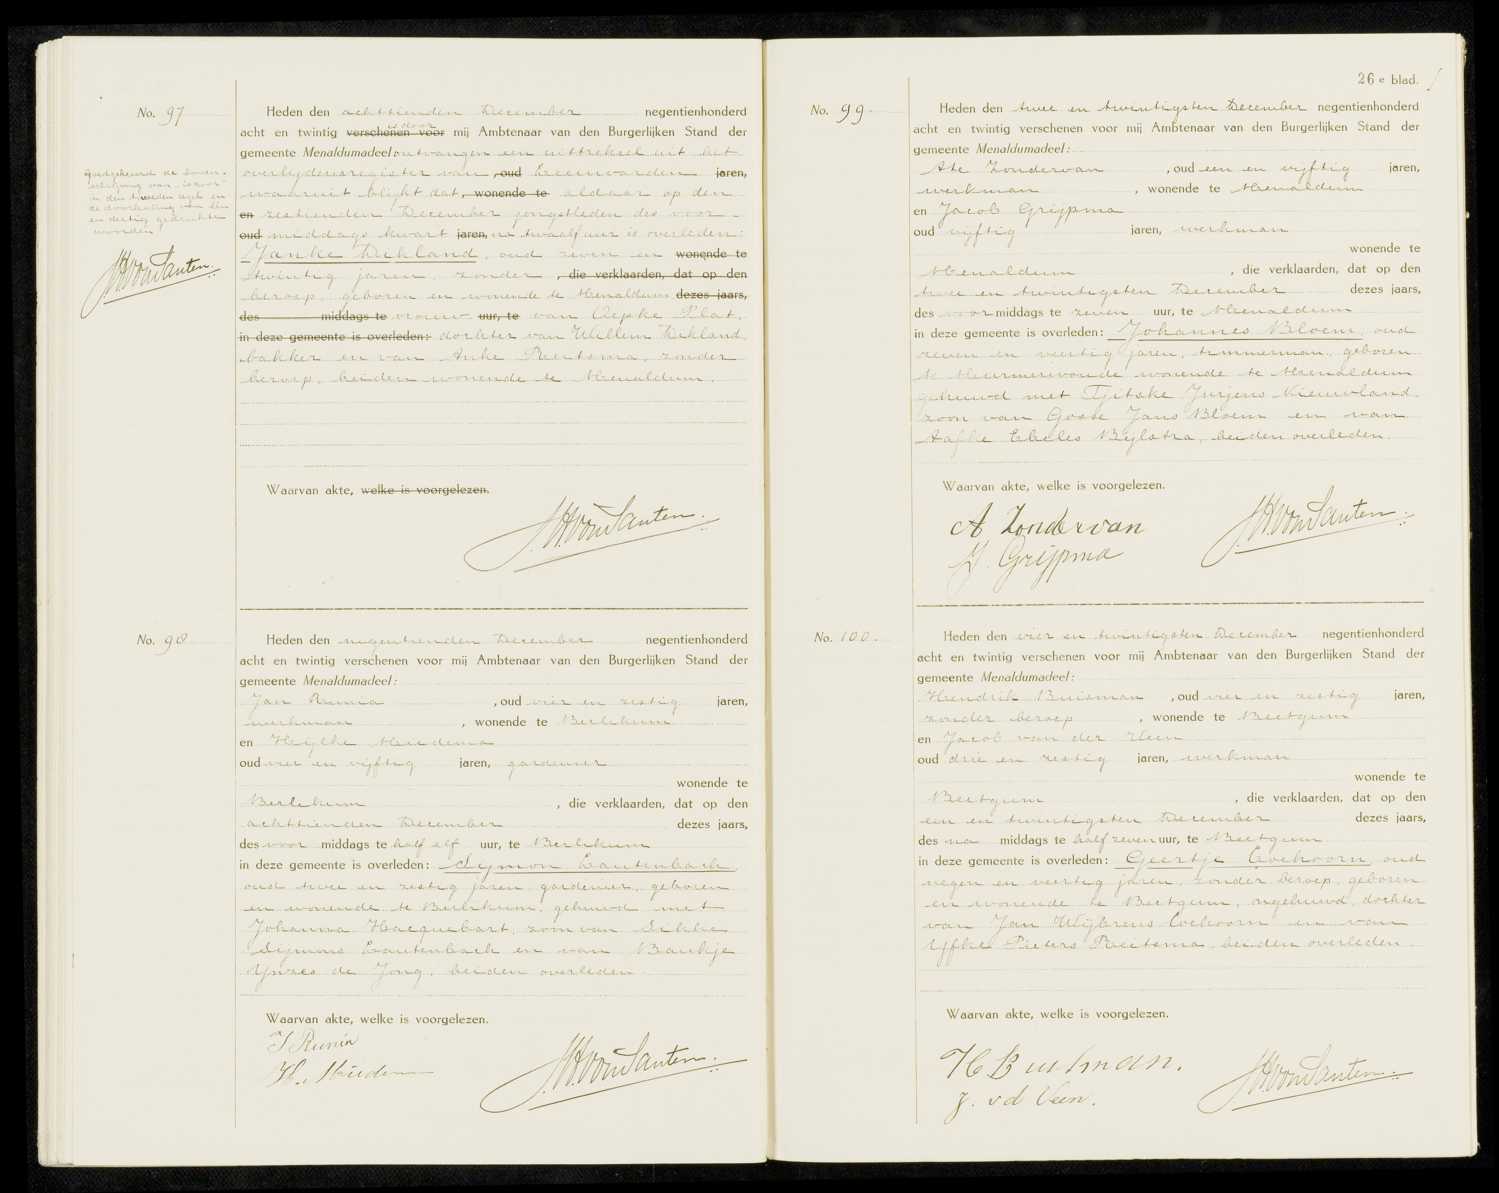 No. 97
Heden den achttienden December negentienhonderd
is door
acht en twintig verschenen voor mij Ambtenaar van den Burgerlijken Stand der
gemeente Menaldumadeel: ontvangen een uittreksel uit het
overlijdensregister van , oud Leeuwarden jaren,
waaruit blijkt dat, wonende te aldaar op den
en zestienden December jongstleden des voor-
oud middags kwart jaren, na twaalf uur is overleden:
Janke Dikland, oud zeven en wonende te
twintig jaren, zonder , die verklaarden, dat op den
beroep, geboren en wonende te Menaldum dezes jaars,
des middags te vrouw uur, te van Aepke Plat,
in deze gemeente is overleden: dochter van Willem Dikland,
bakker en van Anke Reitsma, zonder
beroep, beiden wonende te Menaldum.
Goedgekeurd de boven-
in den tweeden regel en
de doorhaling van
en dertig gedrukte
woorden
JHvanSanten.
Waarvan akte, welke is voorgelezen.
JHvanSanten.
No. 98
Heden den negentienden December negentienhonderd
acht en twintig verschenen voor mij Ambtenaar van den Burgerlijken Stand der
gemeente Menaldumadeel:
Jan Runia , oud vier en zestig jaren,
werkman , wonende te Berlikum
en Heijlke Meidema
oud vier en vijftig jaren, gardenier
wonende te
Berlikum , die verklaarden, dat op den
achttienden December dezes jaars,
des voor middags te half elf uur, te Berlikum
in deze gemeente is overleden: Sijmon Lautenbach,
oud twee en zestig jaren, gardenier, geboren
en wonende te Berlikum, gehuwd met
Johanna Hacquebart, zoon van Sikke
Sijmons Lautenbach en van Baukje
Ypszes de Jong, beiden overleden.
Waarvan akte, welke is voorgelezen.
J Runia
H. Meidema
JHvanSanten.
26e blad.
No. 99
Heden den twee en twintigsten December negentienhonderd
acht en twintig verschenen voor mij Ambtenaar van den Burgerlijken Stand der
gemeente Menaldumadeel:
Ate Zondervan , oud een en vijftig jaren,
werkman , wonende te Menaldum
en Jacob Grijpma
oud vijftig jaren, werkman
wonende te
Menaldum , die verklaarden, dat op den
twee en twintigsten December dezes jaars,
des voor middags te zeven uur, te Menaldum
in deze gemeente is overleden: Johannes Bloem, oud
zeven en veertig jaren, timmerman, geboren
te Murmerwoude wonende te Menaldum
gehuwd met Tjitske Jurjens Nieuwland,
zoon van Gosse Jans Bloem en van
Aafke Ebeles Bijlstra, beiden overleden.
Waarvan akte, welke is voorgelezen.
A Zondervan
J. Grijpma
JHvanSanten.
No. 100.
Heden den vier en twintigsten December negentienhonderd
acht en twintig verschenen voor mij Ambtenaar van den Burgerlijken Stand der
gemeente Menaldumadeel:
Hendrik Buisman , oud vier en zestig jaren,
zonder beroep , wonende te Beetgum
en Jacob van der Veen
oud drie en zestig jaren, werkman
wonende te
Beetgum , die verklaarden, dat op den
een en twintigsten December dezes jaars,
des na middags te half zeven uur, te Beetgum
in deze gemeente is overleden: Geertje Coehoorn, oud
negen en veertig jaren, zonder beroep, geboren
en wonende te Beetgum, ongehuwd, dochter
van Jan Wijbrens Coehoorn en van
IJfke Pieters Reitsma, beiden overleden.
Waarvan akte, welke is voorgelezen.
H Buisman.
J. vd Veen.
JHvanSanten.